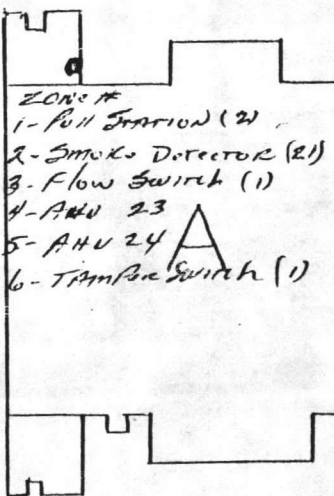 ZONE #
1- Pull STATION (2)
2- Smoke Detector (21)
3- Flow Switch (1)
4- AHU 23
5- AHU 24
A
6- TAmper Switch (1)